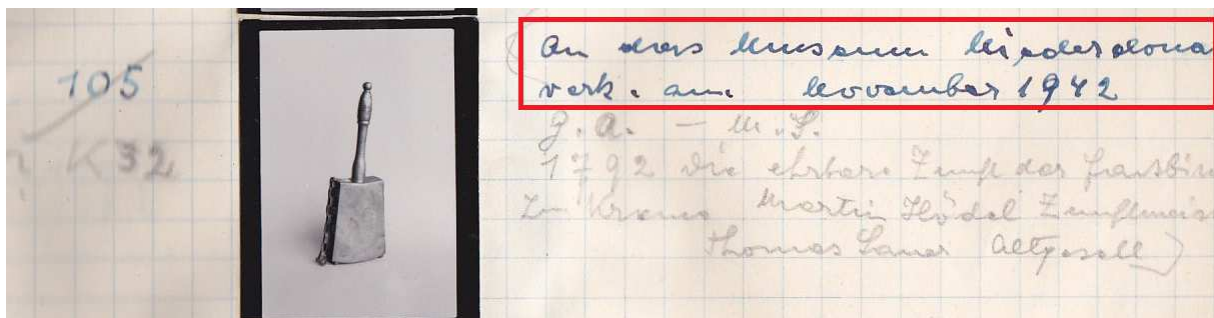 105
K32
An das Museum Niederdona
verk. am. November 1942
J. A. — M. S.
1792 Die ehrbare Zunft der Fassbin
Zu Krems Martin Hödel Zunftmeis
Thomas Lauer Altgesell)